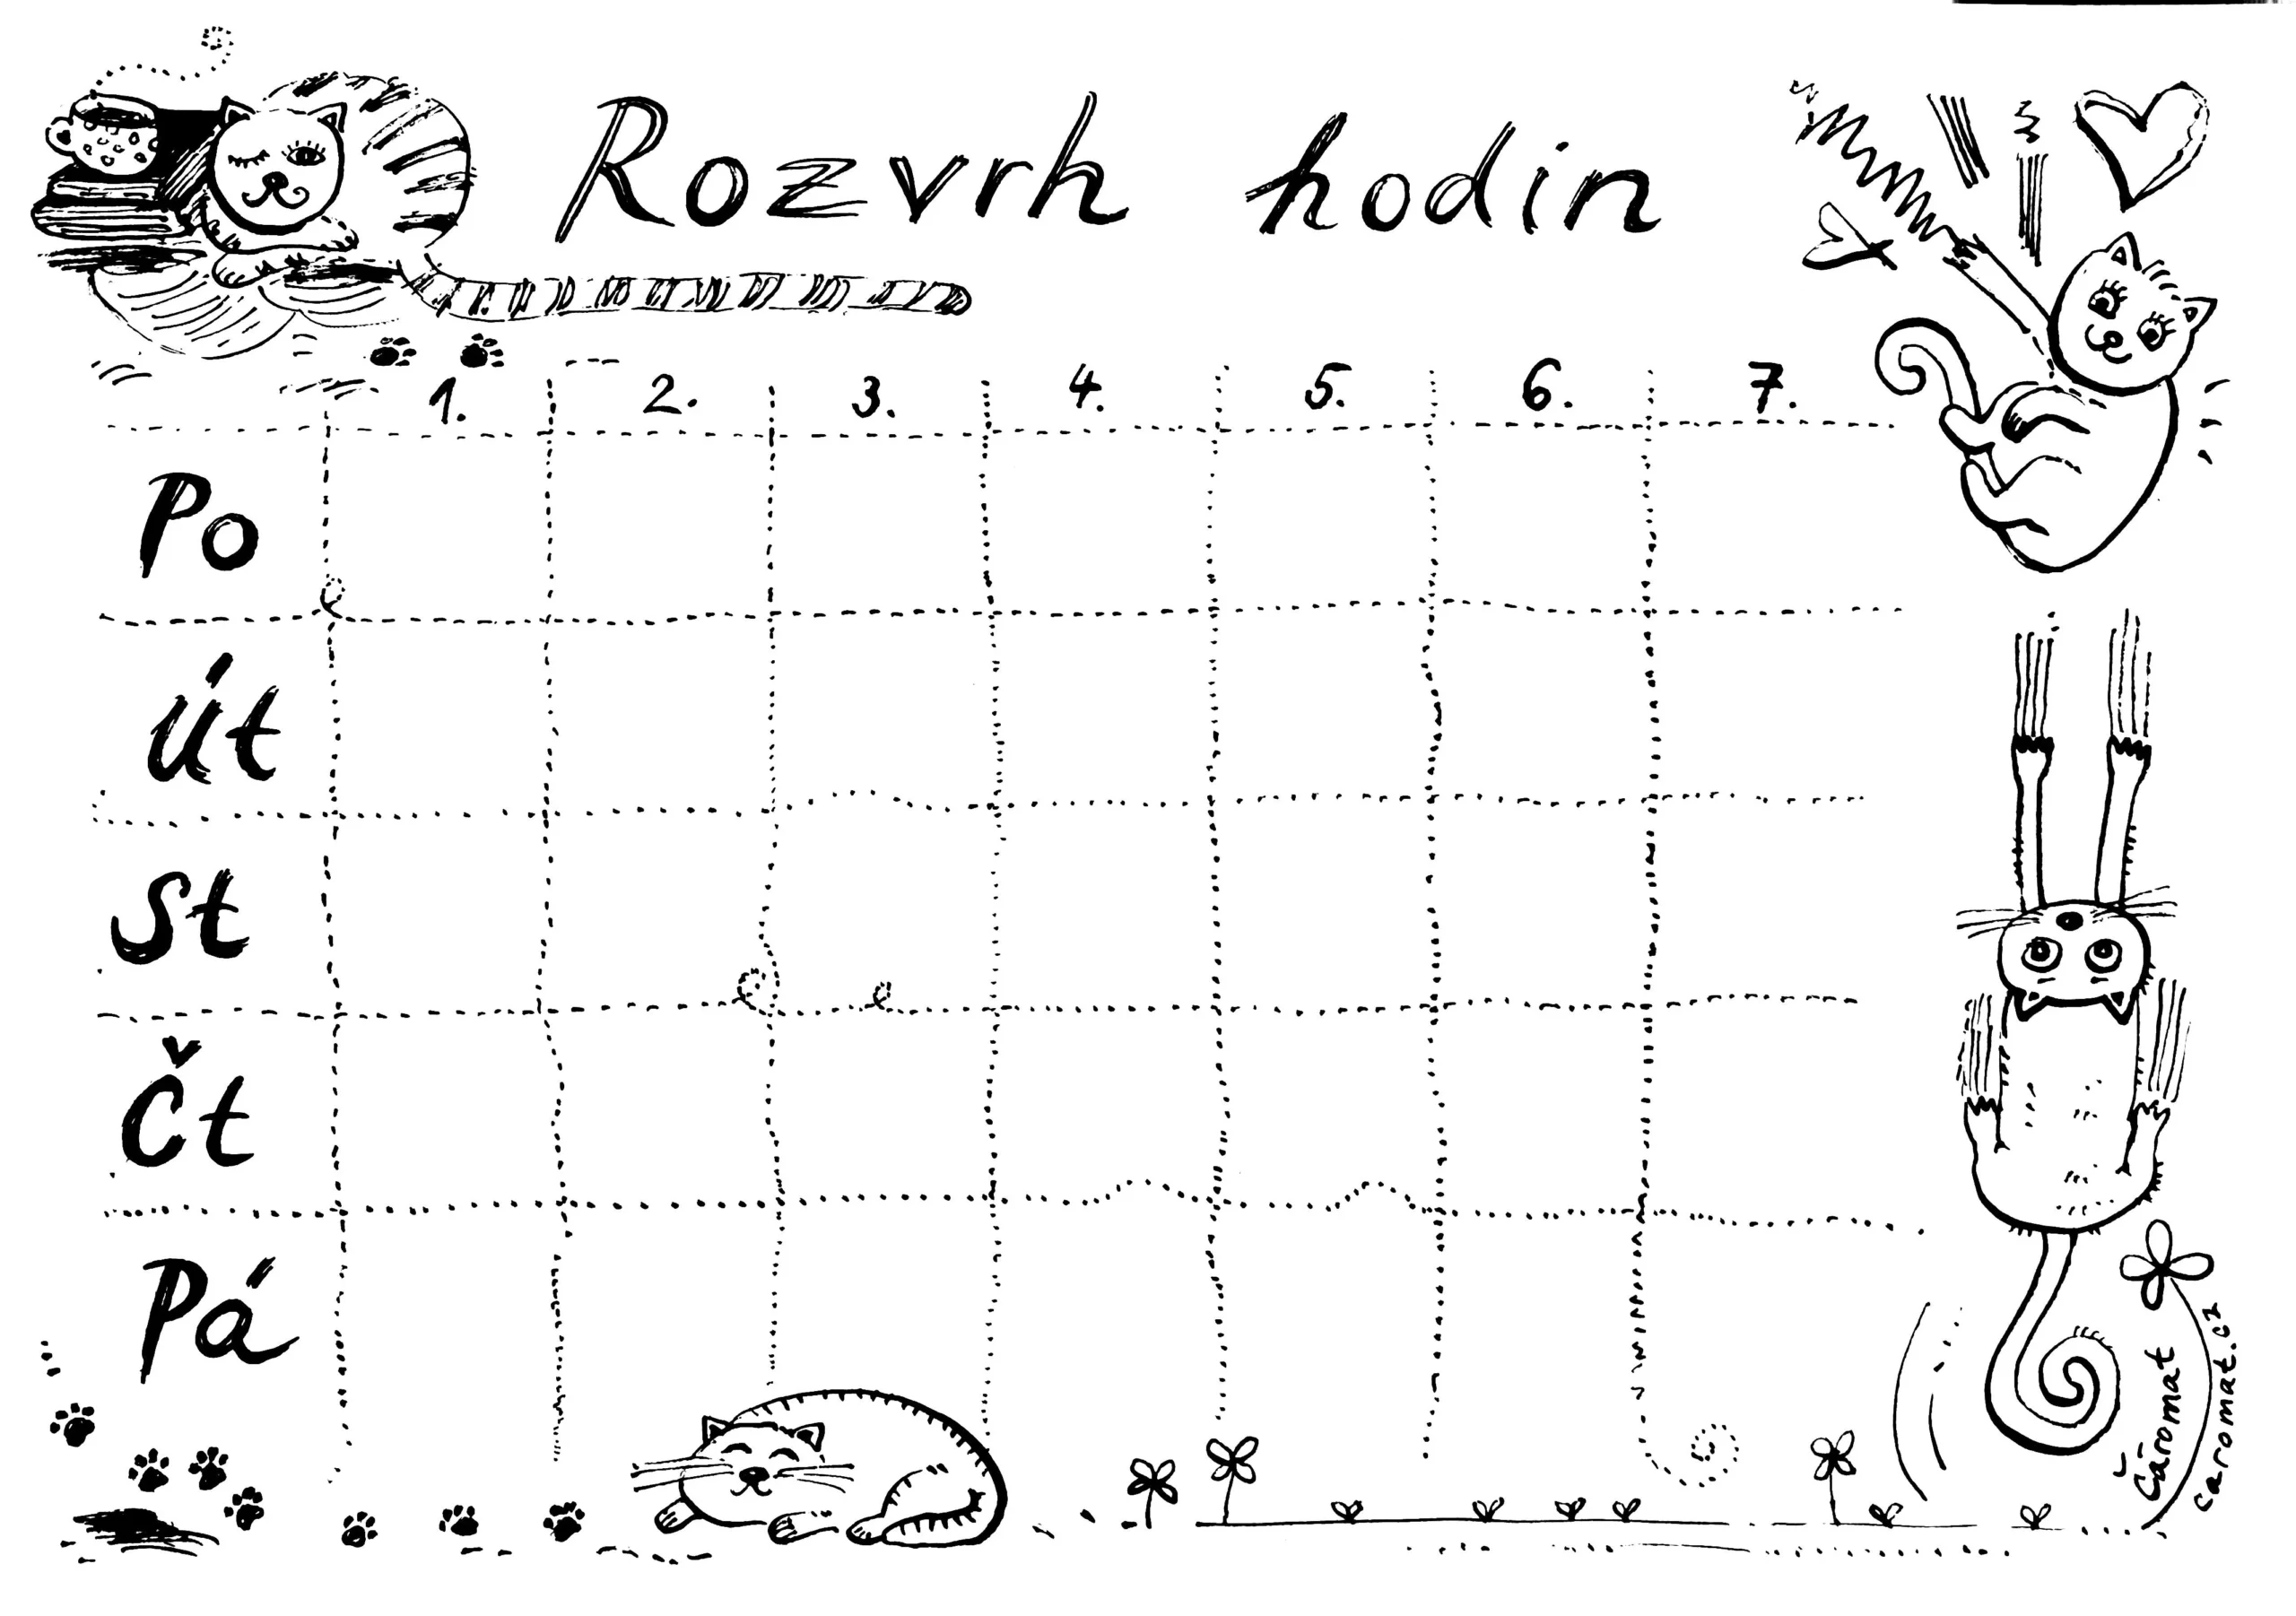 Rozvrh hodin
1. 2. 3. 4. 5. 6. 7.
Po
Út
St
Čt
Pá
Čáromat
caromat.cz